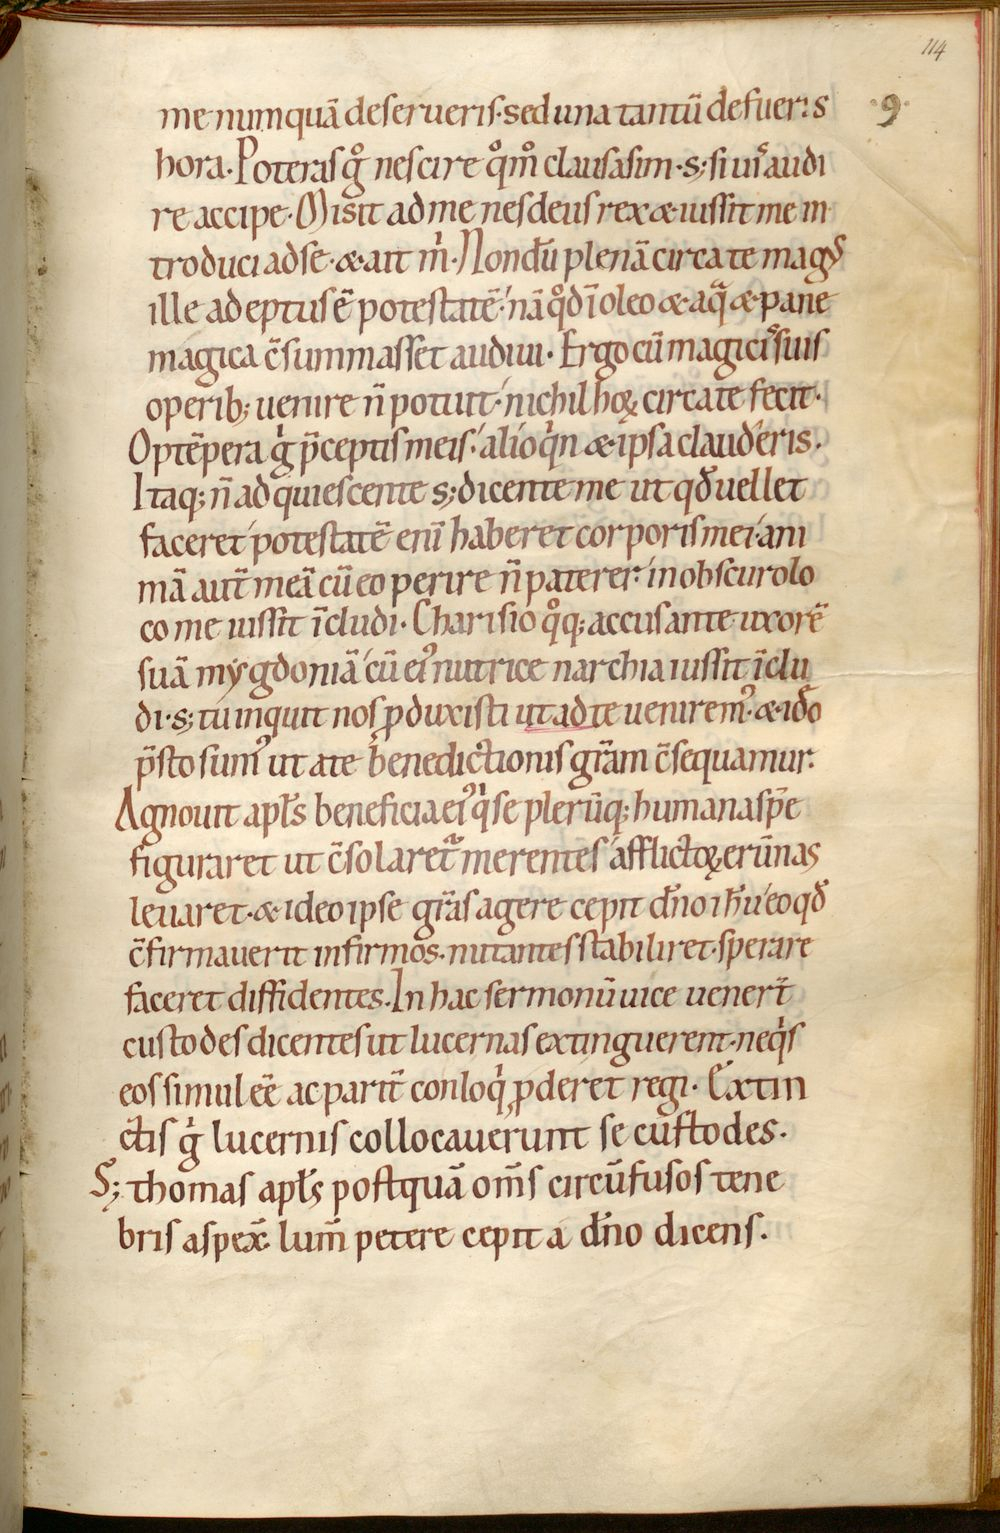 114
me numquā deserueris· sed una tantū defueris
·9·
hora· Poteras gͦ nescire qͦmͦ clausa sim· s; si uis̄ audi
re accipe· Misit ad me nesdeus rex & iussit me in
troduci ad se· & ait m̍· Nondū plenā circa te magꝰ
ille adeptus ē potestatē· nā qͦd ī oleo & aqᷓ & pane
magica c̄summasset audiui· Ergo cū magicis suis
operib; uenire n̄ potuit· nichil hoꝝ circa te fecit·
Optēpera g̍ p̄ceptis meis· alioq̍n & ipsa clauderis·
Itaq; n̄ adquiescente s; dicente me ut qđ uellet
faceret potestatē enī haberet corporis mei· ani
mā aut̄ meā cū eo perire n̄ paterer· in obscuro lo
co me iussit īcludi· Charisio qͦq; accusante uxorē
suā mygdoniā cū eiꝰ nutrice narchia iussit īclu
di· s; tu inquit nos ꝓduxisti ut ad te ueniremꝰ· & iđo
p̄sto sumꝰ ut a te benedictionis gr̄am c̄sequamur·
Agnouit apłs beneficia eiꝰ q̍ se plerūq; humana sp̄e
figuraret ut c̄solaretᷓ merentes afflictoꝝ erūnas
leuaret· & ideo ipse gr̄as agere cepit dn̄o ihu̅ eo qđ
c̄firmauerit infirmos· nutantes stabiliret· sperare
faceret diffidentes· In hac sermonū uice uenert̄
custodes dicentes ut lucernas extinguerent· neq̍s
eos simul eē ac parit̄ conloq̍ ꝓderet regi· Extin
ctis g̍ lucernis collocauerunt se custodes·
S; thomas apłs postquā om̄s circūfusos tene
bris aspex̄ lum̄ petere cepit a dn̄o dicens·